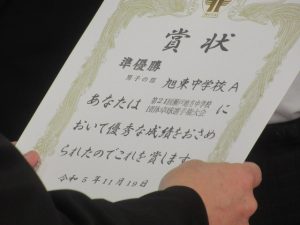 賞状
準優勝
男子の部 旭東中学校A
あなたは
第21回瀬戸地方中学校
団体卓球選手権大会
に
おいて優秀な成績をおさめ
られたのでこれを賞します
令和5年11月19日